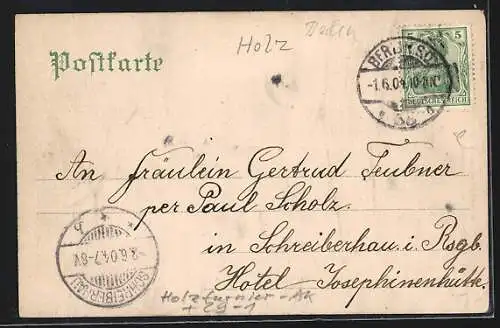 Holz Baden
Postkarte
5 5
BERLIN SO.
-1.6.04.10-11V.
* 36 a
DEUTSCHES REICH
An Fräulein Gertrud Teubner
per Paul Scholz.
in Schreiberhau i. Rsgb.
Hotel Josephinenhütte.
-2.6.04.7-8V.
SCHREIBERHAU
Holzfurnier-AK